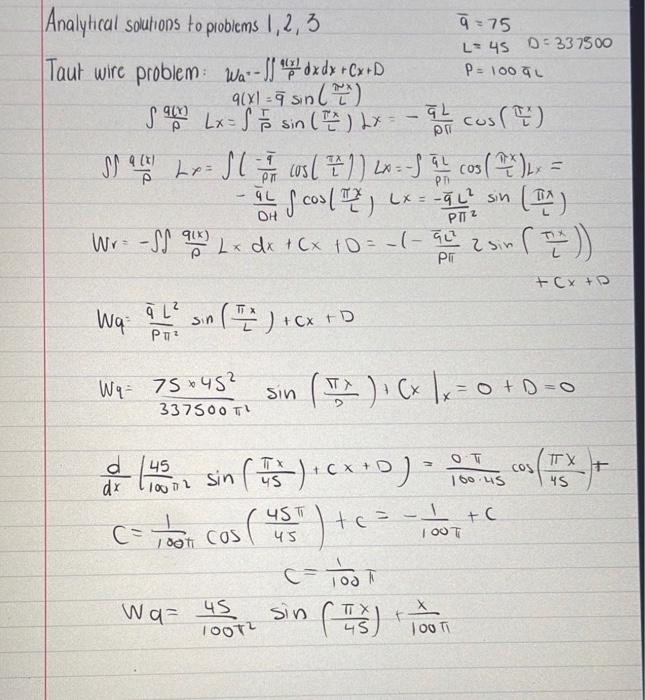 Analytical solutions to problems 1, 2, 3
q̄ = 75
L = 45 D = 337500
P = 100 q̄ L
Taut wire problem: Wa = -∫∫ q(x)/P dx dx + Cx + D
q(x) = q̄ sin(πx/L)
∫ q(x)/P Lx = ∫ q̄/P sin(πx/L) Lx = - q̄L/Pπ cos(πx/L)
∫∫ q(x)/P Lx = ∫(-q̄/Pπ cos(πx/L)) Lx = -∫ q̄L/Pπ cos(πx/L) Lx =
- q̄L/DH ∫ cos(πx/L) Lx = -q̄L²/Pπ² sin(πx/L)
Wr = -∫∫ q(x)/P Lx dx + Cx + D = -(- q̄L²/Pπ 2 sin(πx/L))
+ Cx + D
Wq = q̄L²/Pπ² sin(πx/L) + Cx + D
Wq = 75*45²/337500π² sin(πx/D) + Cx |x = 0 + D = 0
d/dx (45/100π² sin(πx/45) + Cx + D) = 0·π/100·45 cos(πx/45) +
C = 1/100π cos(45π/45) + C = - 1/100π + C
C = 1/100π
Wq = 45/100π² sin(πx/45) + x/100π